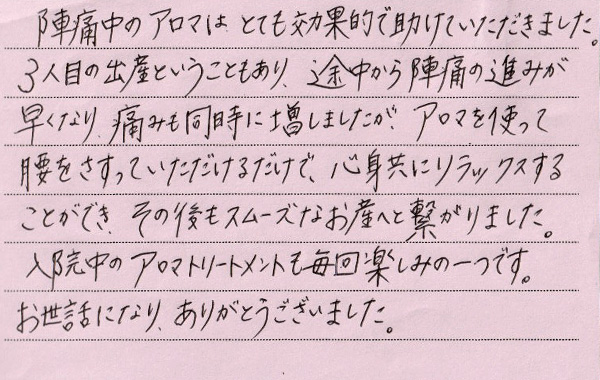 陣痛中のアロマは、とても効果的で助けていただきました。
3人目の出産ということもあり、途中から陣痛の進みが
早くなり、痛みも同時に増しましたが、アロマを使って
腰をさすっていただけるだけで、心身共にリラックスする
ことができ、その後もスムーズなお産へと繋がりました。
入院中のアロマトリートメントも毎回楽しみの一つです。
お世話になり、ありがとうございました。